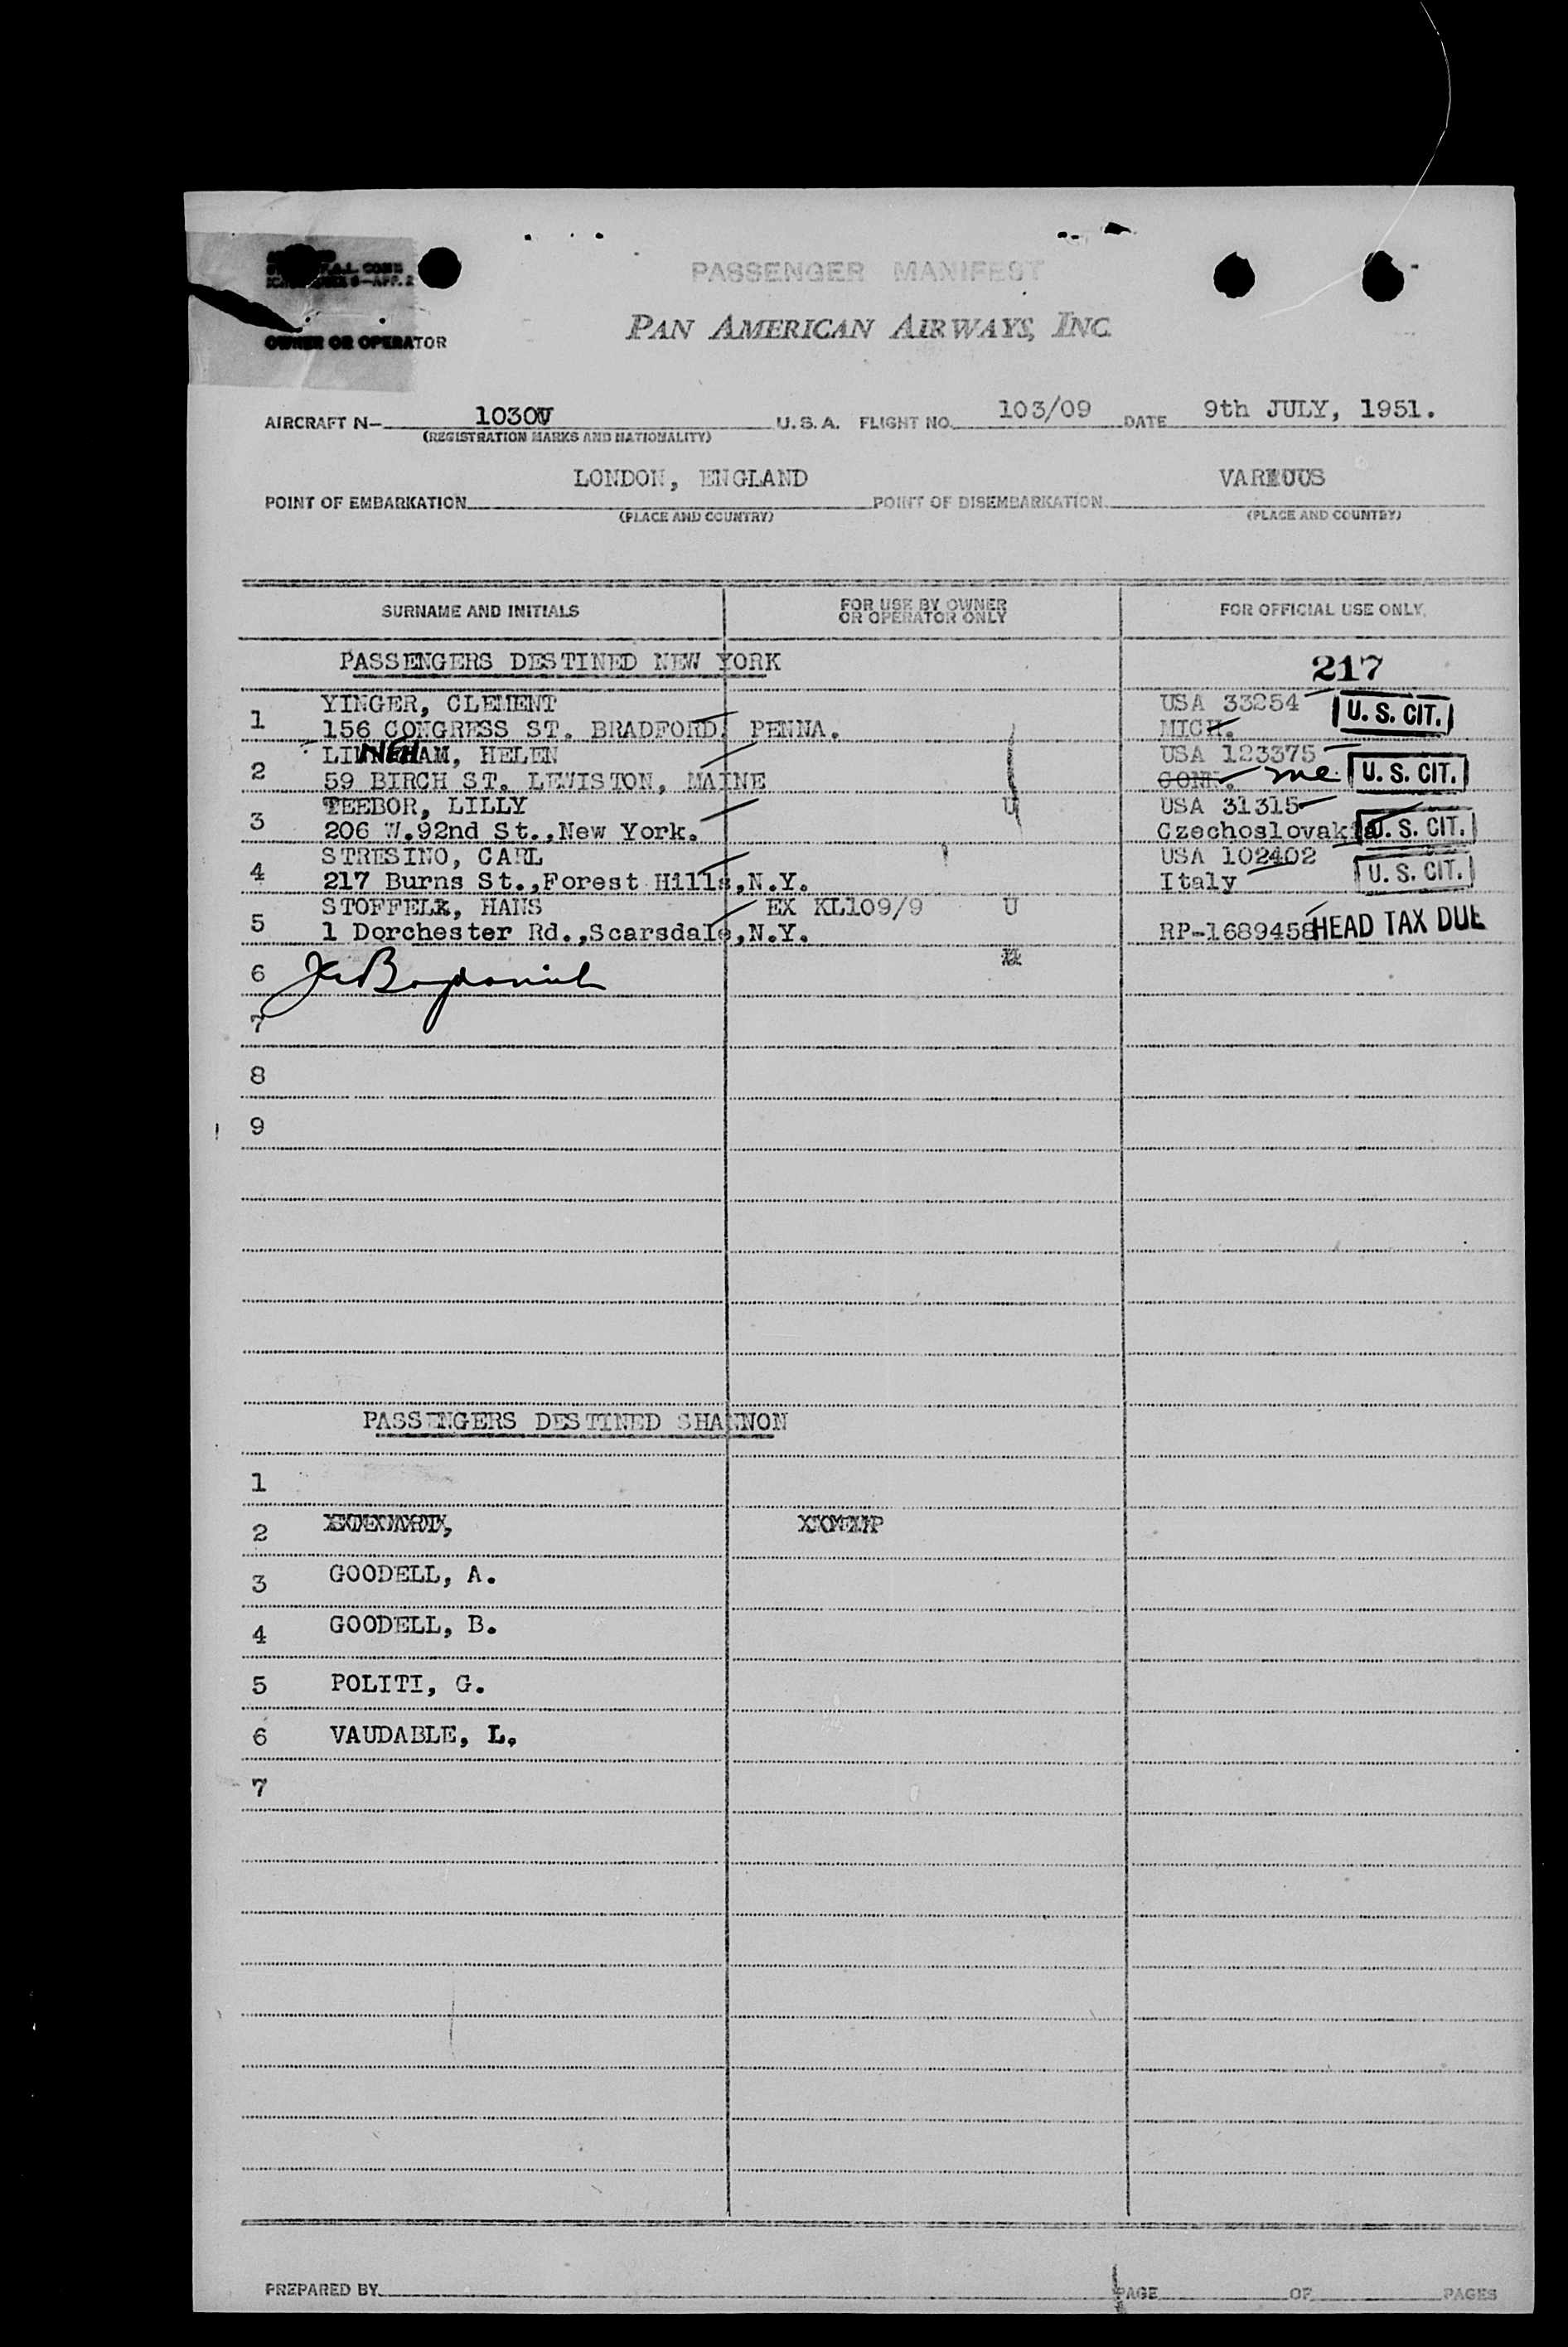 PASSENGER MANIFEST
PAN AMERICAN AIRWAYS, INC.
OWNER OR OPERATOR
AIRCRAFT N- 1030V U.S.A. FLIGHT NO. 103/09 DATE 9th JULY, 1951.
(REGISTRATION MARKS AND NATIONALITY)
LONDON, ENGLAND VARIOUS
POINT OF EMBARKATION POINT OF DISEMBARKATION
(PLACE AND COUNTRY) (PLACE AND COUNTRY)
SURNAME AND INITIALS FOR USE BY OWNER OR OPERATOR ONLY FOR OFFICIAL USE ONLY
PASSENGERS DESTINED NEW YORK 217
1 YINGER, CLEMENT USA 33254 U. S. CIT.
156 CONGRESS ST. BRADFORD, PENNA. MICH.
2 HELEN USA 123375
59 BIRCH ST. LEWISTON, MAINE CONN. me. U. S. CIT.
3 TEEBOR, LILLY U USA 31315
206 W.92nd St.,New York. Czechoslovakia U. S. CIT.
4 STRESINO, CARL USA 102402
217 Burns St.,Forest Hills,N.Y. Italy U. S. CIT.
5 STOFFEL, HANS EX KL109/9 U
1 Dorchester Rd.,Scarsdale,N.Y. RP-1689458 HEAD TAX DUE
6
7
8
9
PASSENGERS DESTINED SHANNON
1
2
3 GOODELL, A.
4 GOODELL, B.
5 POLITI, G.
6 VAUDABLE, L.
7
PREPARED BY PAGE OF PAGES